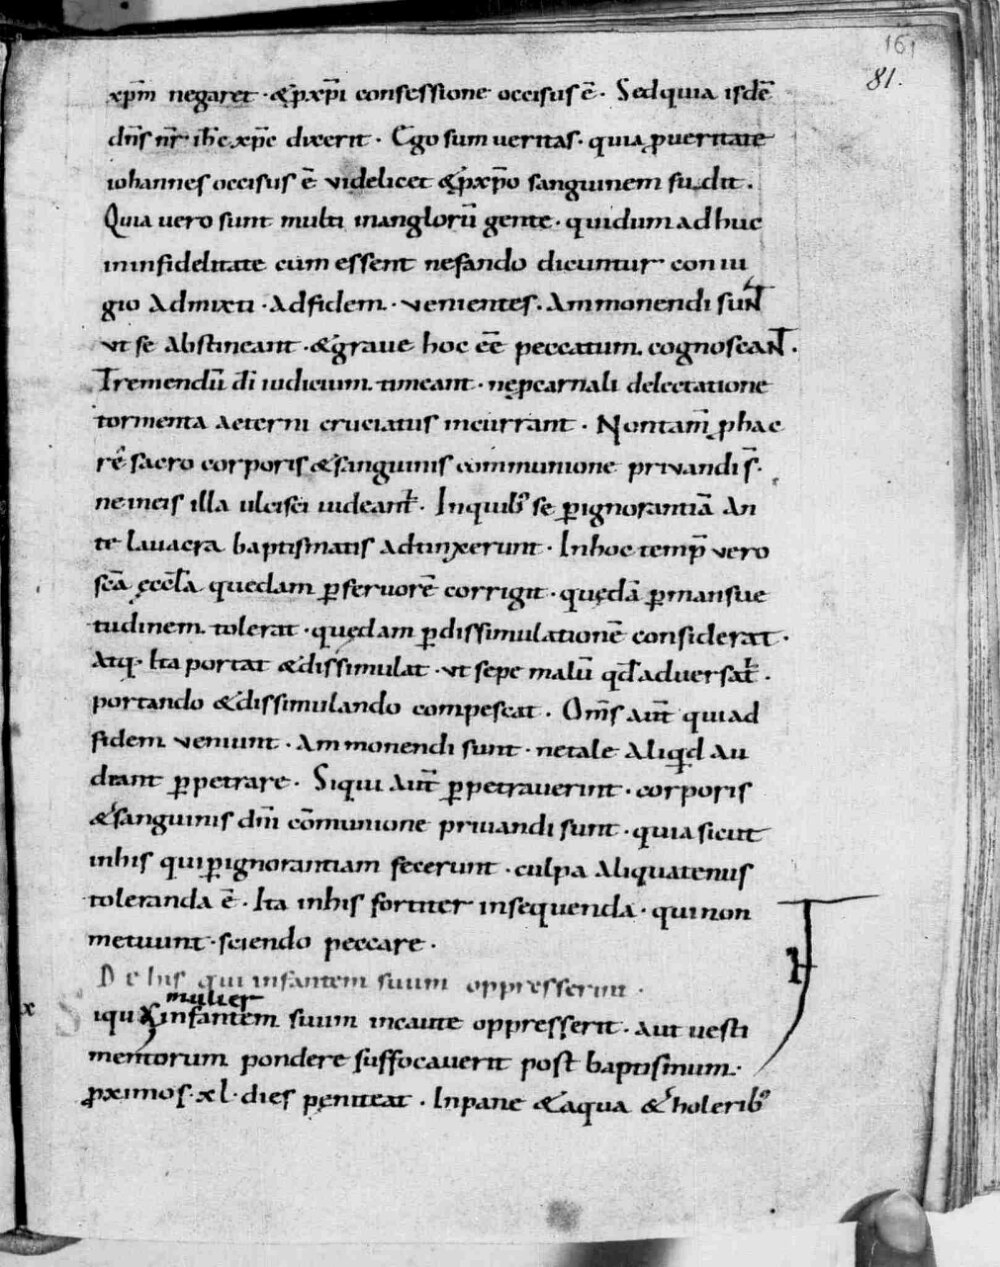 161
81.
xp̄m negaret · & ꝓ xp̄i confessione occisus ē · Sed quia isdē
dn̄s nr̄ ih̄c xp̄c dixerit · Ego sum ueritas · quia ꝓ ueritate
iohannes occisus ē videlicet & ꝓ xp̄o sanguinem fudit .
Quia uero sunt multi inanglorū gente · qui dum adhuc
in infidelitate eum essent nefando dicuntur coniu
gio admixti · ad fidem · uenientes . Ammonendi sunt
ut se abstineant · & graue hoc eē peccatum cognoscant .
Tremendū dī iudicium timeant · ne ꝓ carnali delectatione
tormenta aeterni cruciatus incurrant · Non tam̄ ꝓ hac
rē sacro corporis & sanguinis communione priuandi s̄ .
ne in eis illa ulcisci uideant᷑ · In quib; se ꝑ ignorantiā an
te lauacra baptismatis adtinxerunt · In hoc temp̄ vero
sc̄a ęccl̄a quedam ꝑ feruorē corrigit · quędā ꝑ mansue
tudinem tolerat · quędam ꝑ dissimulationē considerat ·
Atq; ita portat & dissimulat · ut sepe malū qđ aduersat᷑ ·
portando & dissimulando compescat . Om̄s aūt qui ad
fidem ueniunt · Ammonendi sunt · ne tale aliqd au
deant ꝑpetrare · Siqui aūt ꝑpetrauerint · corporis
& sanguinis dn̄i cōmunione priuandi sunt · quia sicut
in his qui ꝑ ignorantiam fecerunt · culpa aliquatenus
toleranda ē · Ita in his fortiter insequenda · qui non
metuunt · sciendo peccare ·
De his qui infantem suum oppresserint ·
mulier
x Siqua infantem suum incaute oppresserit · aut uesti
mentorum pondere suffocauerit post baptismum ·
ꝓximos · xl · dies pęniteat · In pane & aqua & holerib;